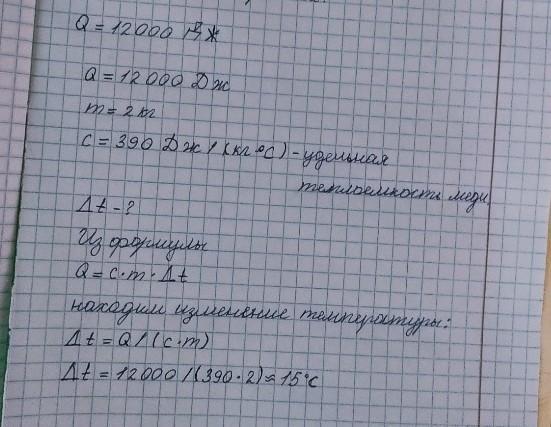 Q = 12000 Дж
Q = 12000 Дж
m = 2 кг
c = 390 Дж / (кг °С) - удельная
теплоемкость меди
Δt - ?
Из формулы
Q = c · m · Δt
находим изменение температуры:
Δt = Q / (c · m)
Δt = 12000 / (390 · 2) ≈ 15°С